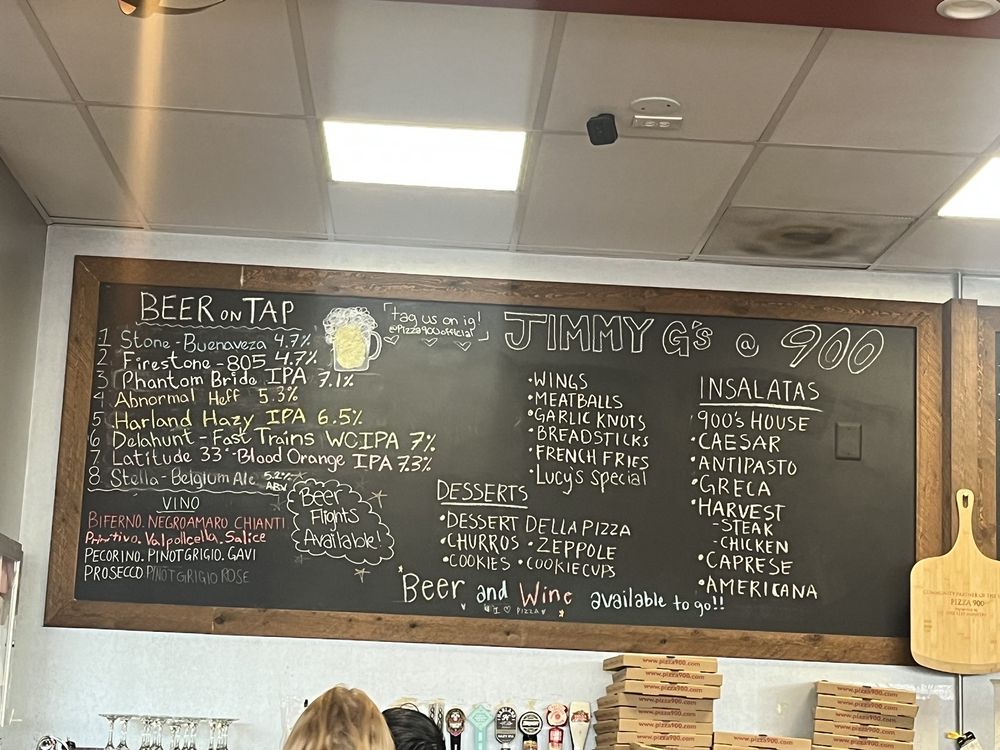 BEER ON TAP
1 Stone - Buenaveza 4.7%
2 Firestone - 805 4.7%
3 Phantom Bride IPA 7.1%
4 Abnormal Heff 5.3%
5 Harland Hazy IPA 6.5%
6 Delahunt - Fast Trains WCIPA 7%
7 Latitude 33° - Blood Orange IPA 7.3%
8. Stella - Belgium Ale 5.2% ABV
VINO
BIFERNO. NEGROAMARO, CHIANTI
Primitivo. Valpolicella. Salice
PECORINO. PINOT GRIGIO. GAVI
PROSECCO PINOT GRIGIO ROSE
Beer
Flights
Available!
tag us on ig!
@Pizza900official
JIMMY G's @ 900
•WINGS
•MEATBALLS
•GARLIC KNOTS
•BREADSTICKS
•FRENCH FRIES
•Lucy's special
DESSERTS
•DESSERT DELLA PIZZA
•CHURROS •ZEPPOLE
•COOKIES •COOKIE CUPS
INSALATAS
900's HOUSE
•CAESAR
•ANTIPASTO
•GRECA
•HARVEST
-STEAK
-CHICKEN
•CAPRESE
•AMERICANA
Beer and Wine available to go!!
I ♡ PIZZA
COMMUNITY PARTNER OF THE
PIZZA 900
www.pizza900.com
www.pizza900.com
www.pizza900.com
www.pizza900.com
www.pizza900.com
www.pizza900.com
www.pizza900.com
www.pizza900.com
www.pizza900.com
www.pizza900.com
www.pizza900.com